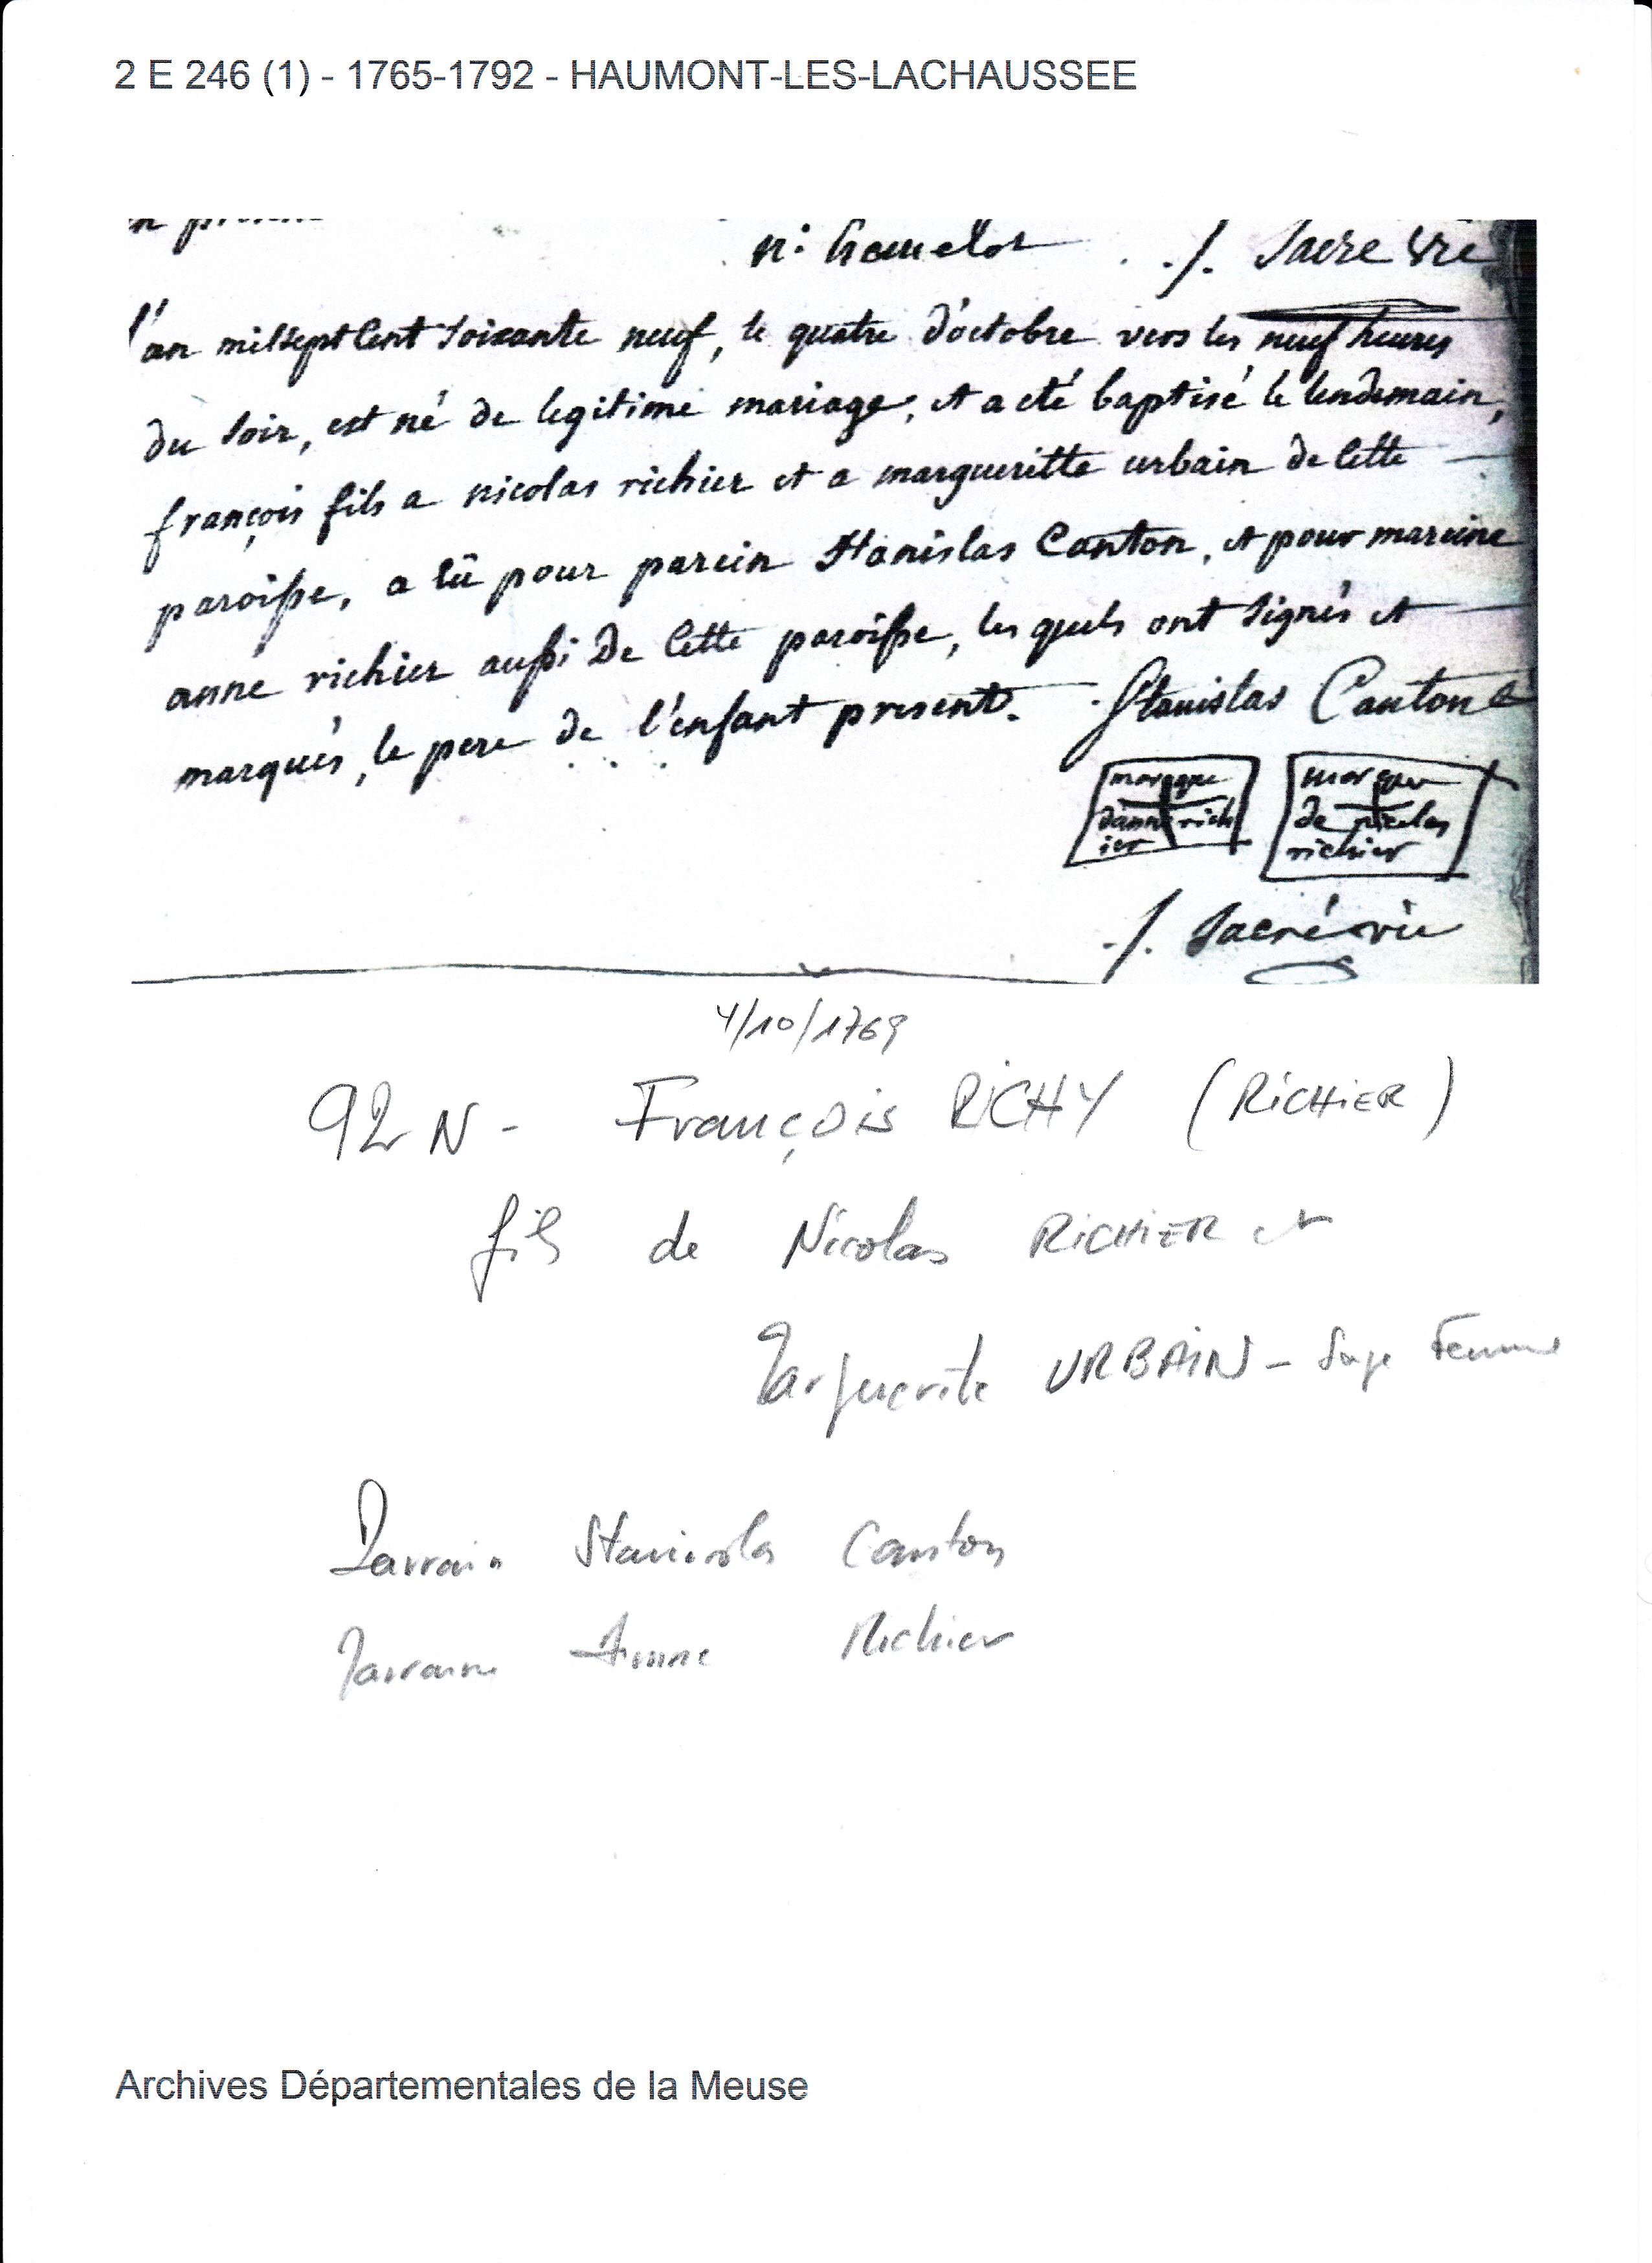 2 E 246 (1) - 1765-1792 - HAUMONT-LES-LACHAUSSEE
n: hamelot ./. Sacre
l'an mil sept cent soixante neuf, le quatre d'octobre vers les neuf heures
du soir, est né de legitime mariage, et a eté baptisé le lendemain,
françois fils a nicolas richier et a margueritte urbain de cette
paroisse, a eü pour parein Stanislas Canton, et pour mareine
anne richier aussi de cette paroisse, les quels ont signés et
marqués, le pere de l'enfant present. Stanislas Canton
marque
d'anne rich
ier
marque
de nicolas
richier
./.
4/10/1769
92 N - François RICHY (RICHIER)
fils de Nicolas RICHIER et
Marguerite URBAIN - Sage Femme
Parrain Stanislas Canton
Marraine Anne Richier
Archives Départementales de la Meuse